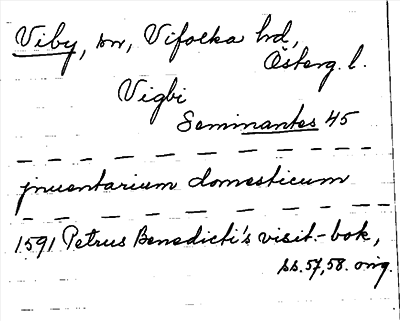 Viby, sn, Vifolka hd,
Österg. l.
Vigbi
Seminantes 45
Inuentarium domesticum
1591 Petrus Benedicti's visit.-bok,
ss. 57, 58. orig.